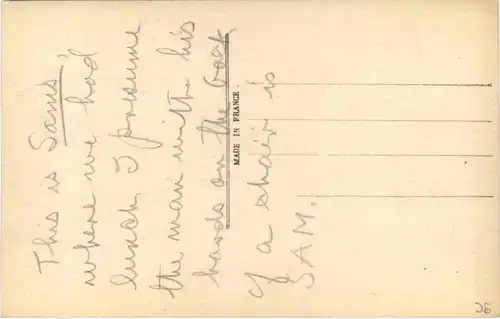 This is Sams,
where we had
lunch. I presume
the man with his
hands on the back
of a chair is
SAM.
MADE IN FRANCE